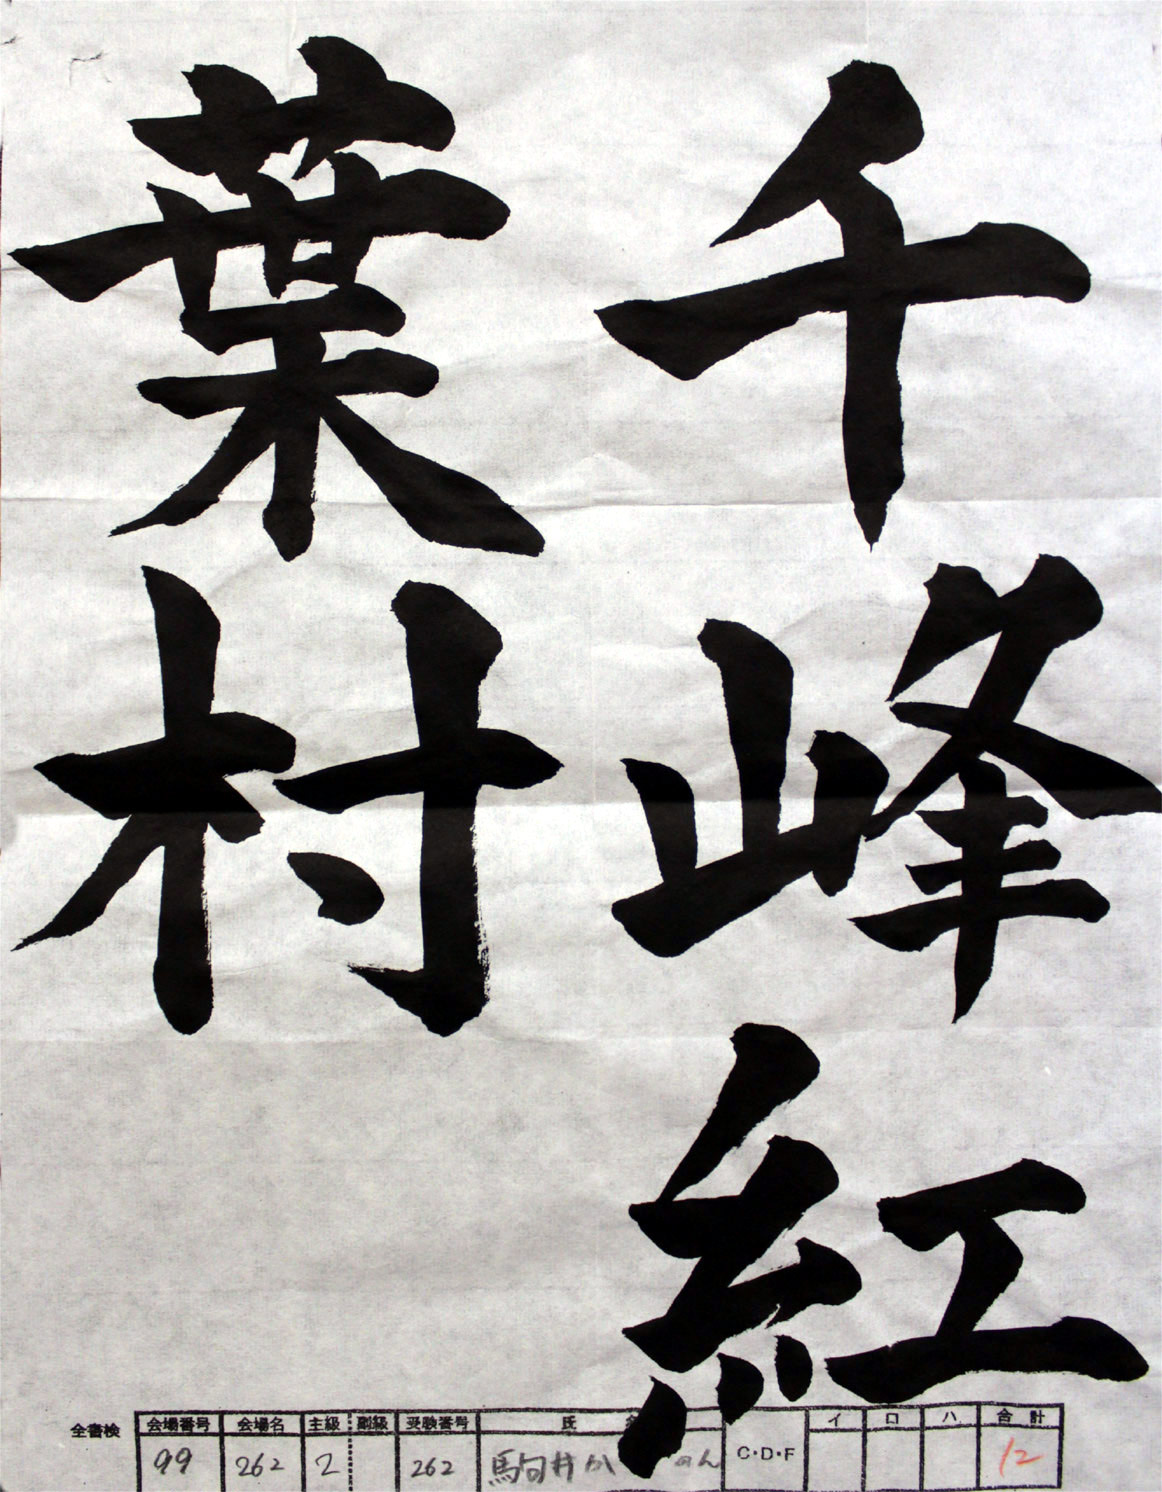 千峰紅
葉村
全書検 会場番号 会場名 主級 副級 受験番号 氏 名 イ ロ ハ 合計
99 262 2 262 C・D・F 12